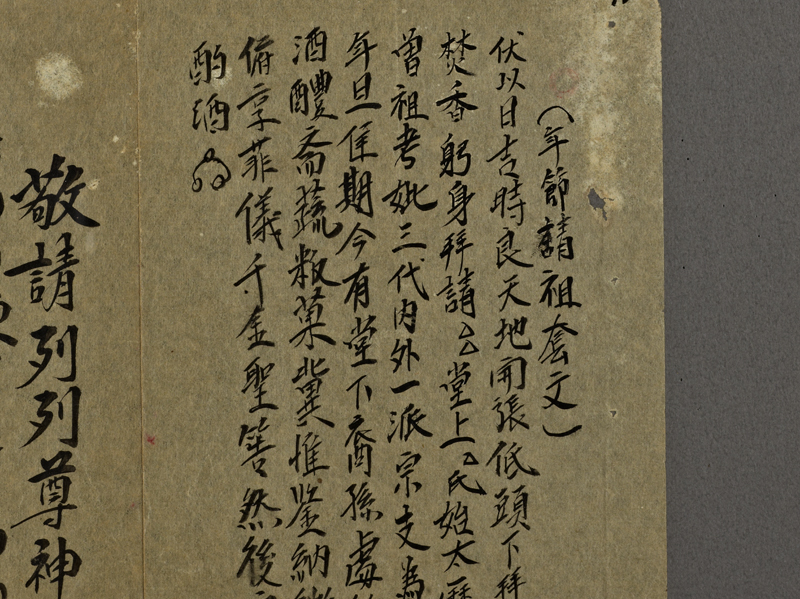 (年節請祖套文)
伏以日吉時良天地開張低頭下拜
焚香躬身拜請厶堂上厶氏始太曆
曾祖考妣三代内外一派宗支為
年旦隹期今有堂下裔孫虔
酒醴斋蔬粄菓冀惟鉴納
俯享菲儀千金聖筶然後
酌酒
敬請列列尊神